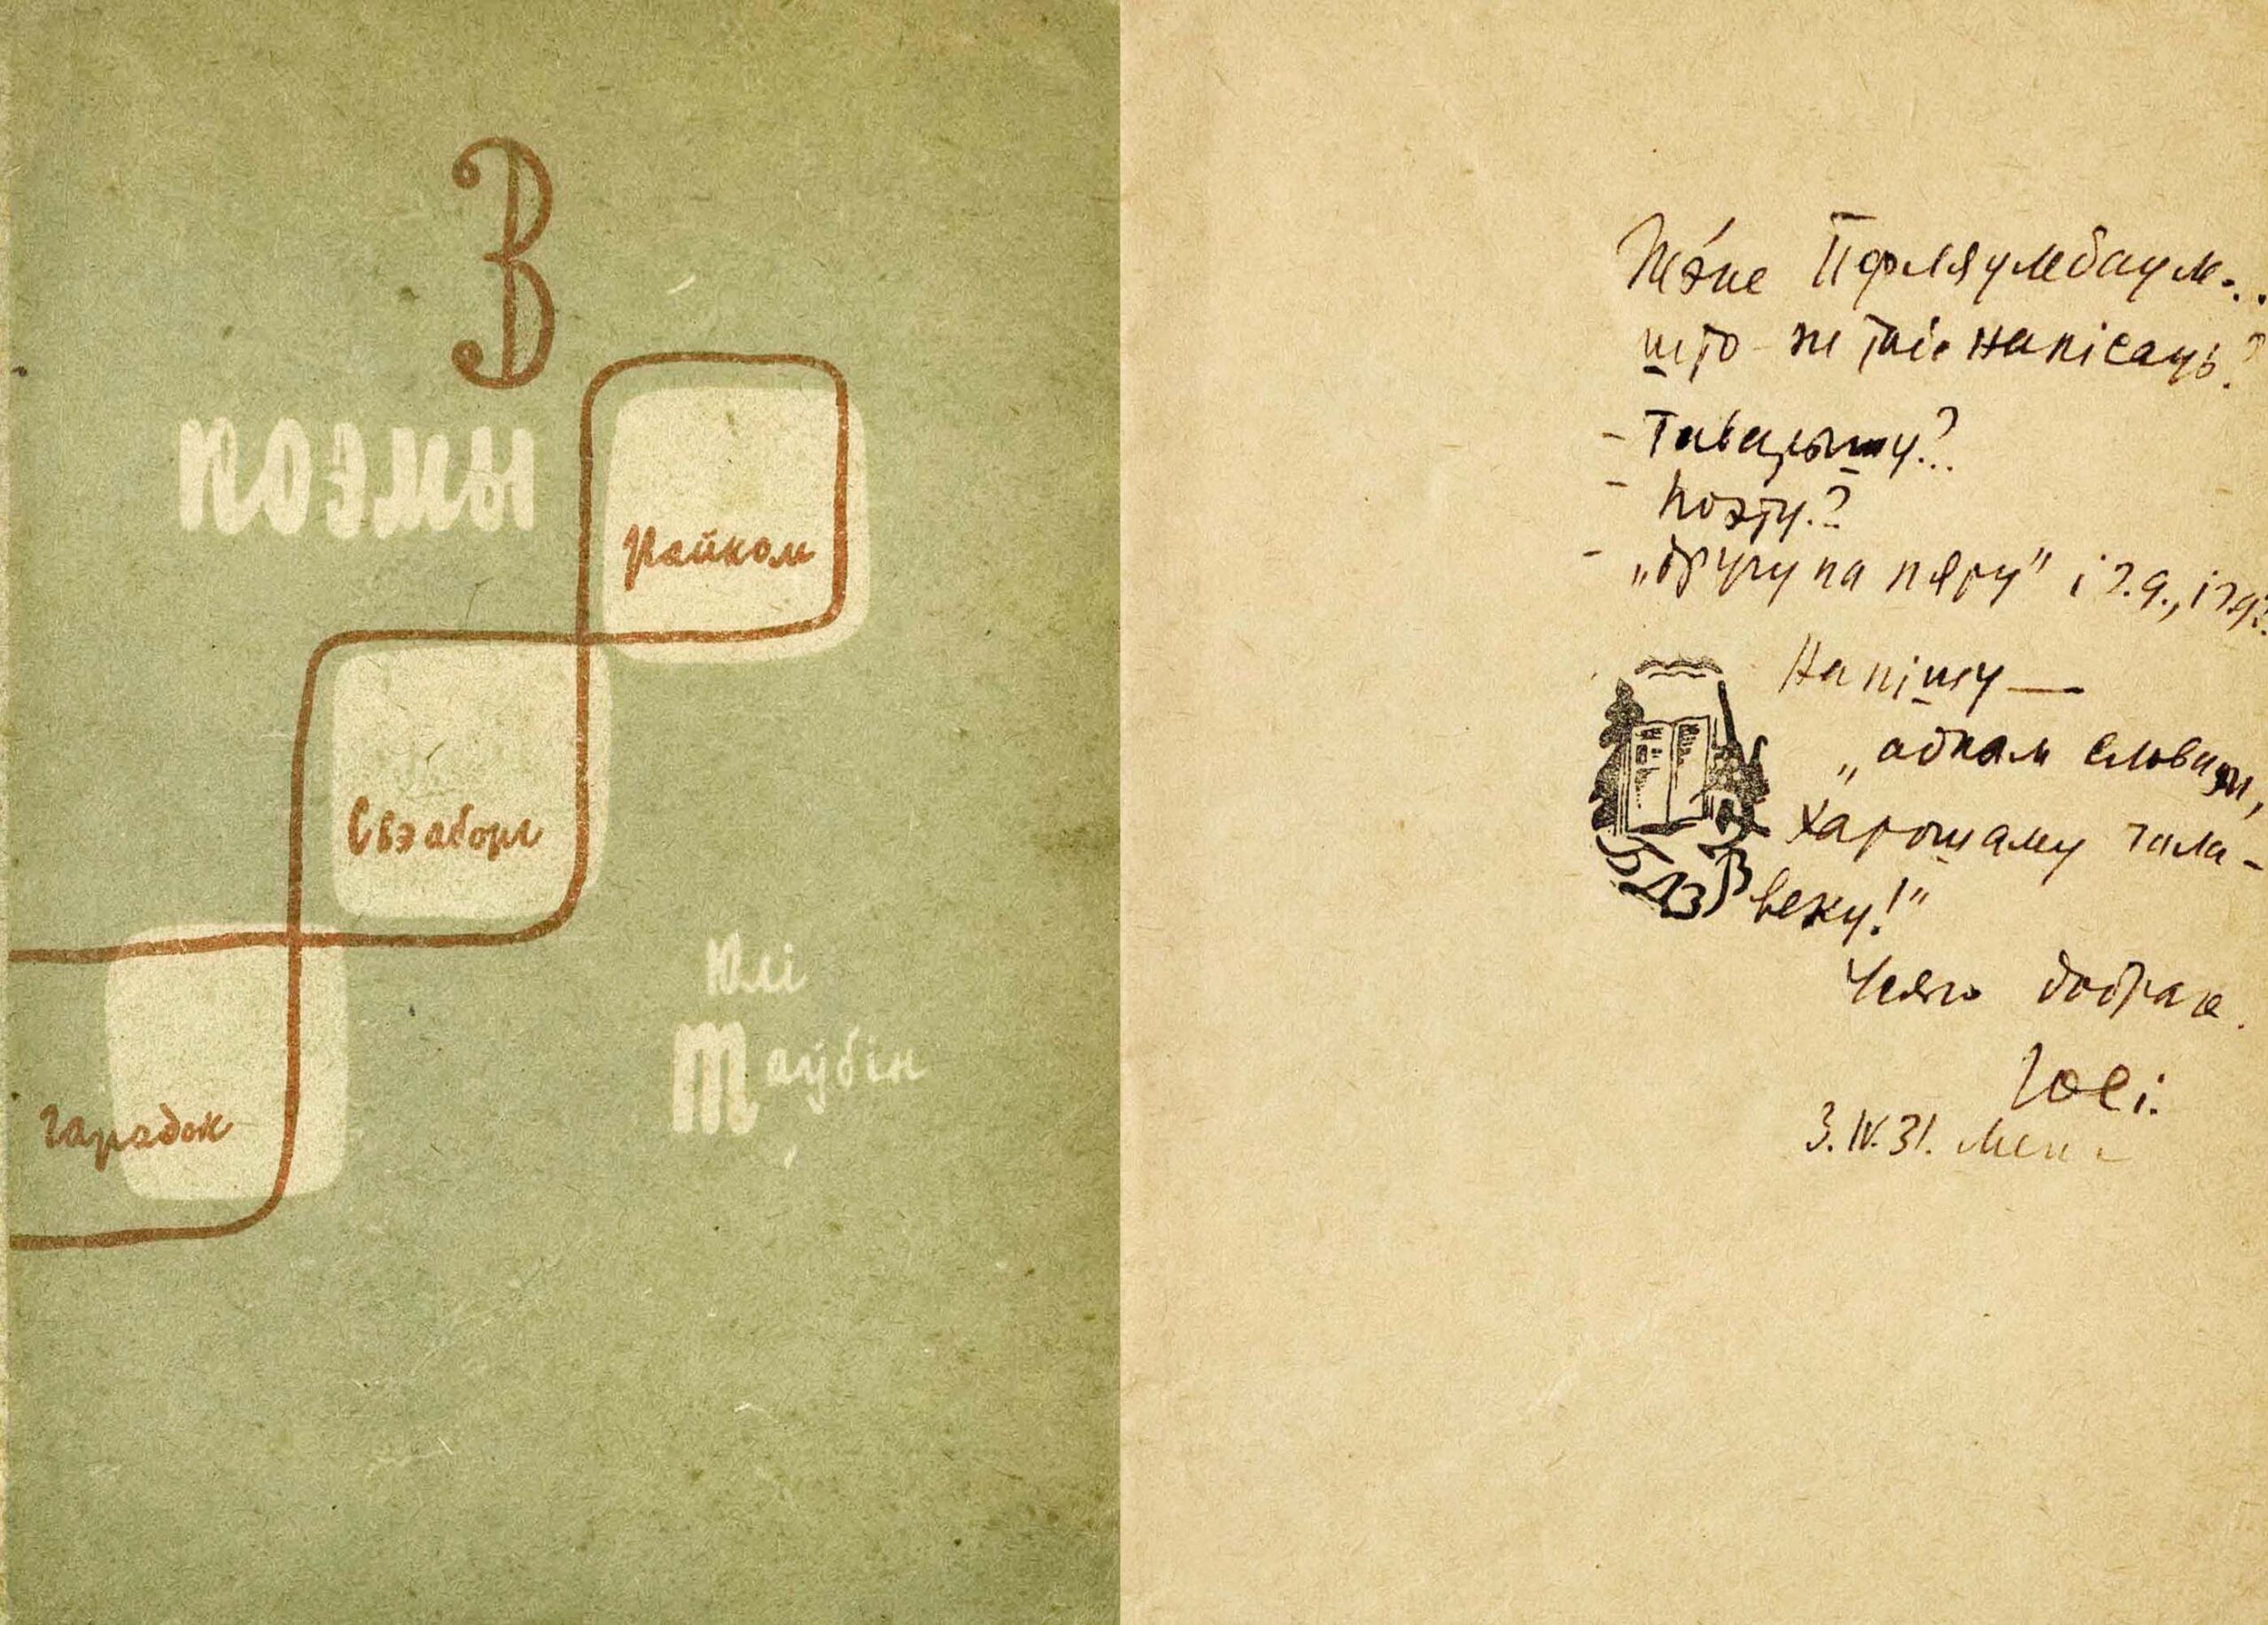 3
поэмы
Райком
Свэаборг
Гарадок
Юлі
Таўбін
Жэне Пфляўмбаум...
што ж табе напісаць?
– Таварышу?..
– Поэту?
– „другу па пяру" і г.д., і г.д.
Напішу —
„адным словам,
Харошаму чала-
веку!"
Усяго добрага.
Юлі.
3.IV.31. Менск